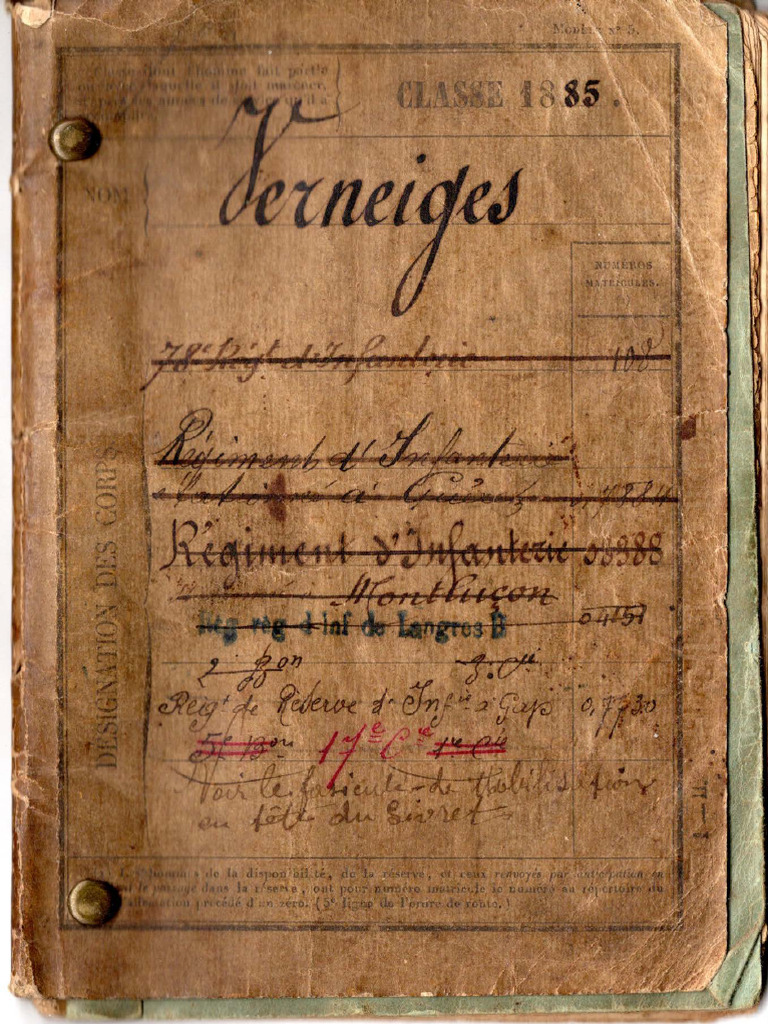 Modèle n° 5.
(1) Classe dont l'homme fait partie
CLASSE 1885.
NOM
Verneiges
NUMÉROS
MATRICULES.
78e Régt d'Infanterie 108
Régiment d'Infanterie
Stationné à Guéret
Régiment d'Infanterie 08388
Montluçon
Rég rég d inf de Langres B
2 Bon
DÉSIGNATION DES CORPS
Régt de Réserve d'Infie à Gap 0,7730
5e Bon 17e Cie 1re Cie
Voir le fascicule de Mobilisation
en tête du Livret
de la disponibilité, de la réserve, et ceux renvoyés par anticipation en
le passage dans la réserve, ont pour numéro matricule le numéro au répertoire du
précédé d'un zéro. (5e ligne de l'ordre de route.)